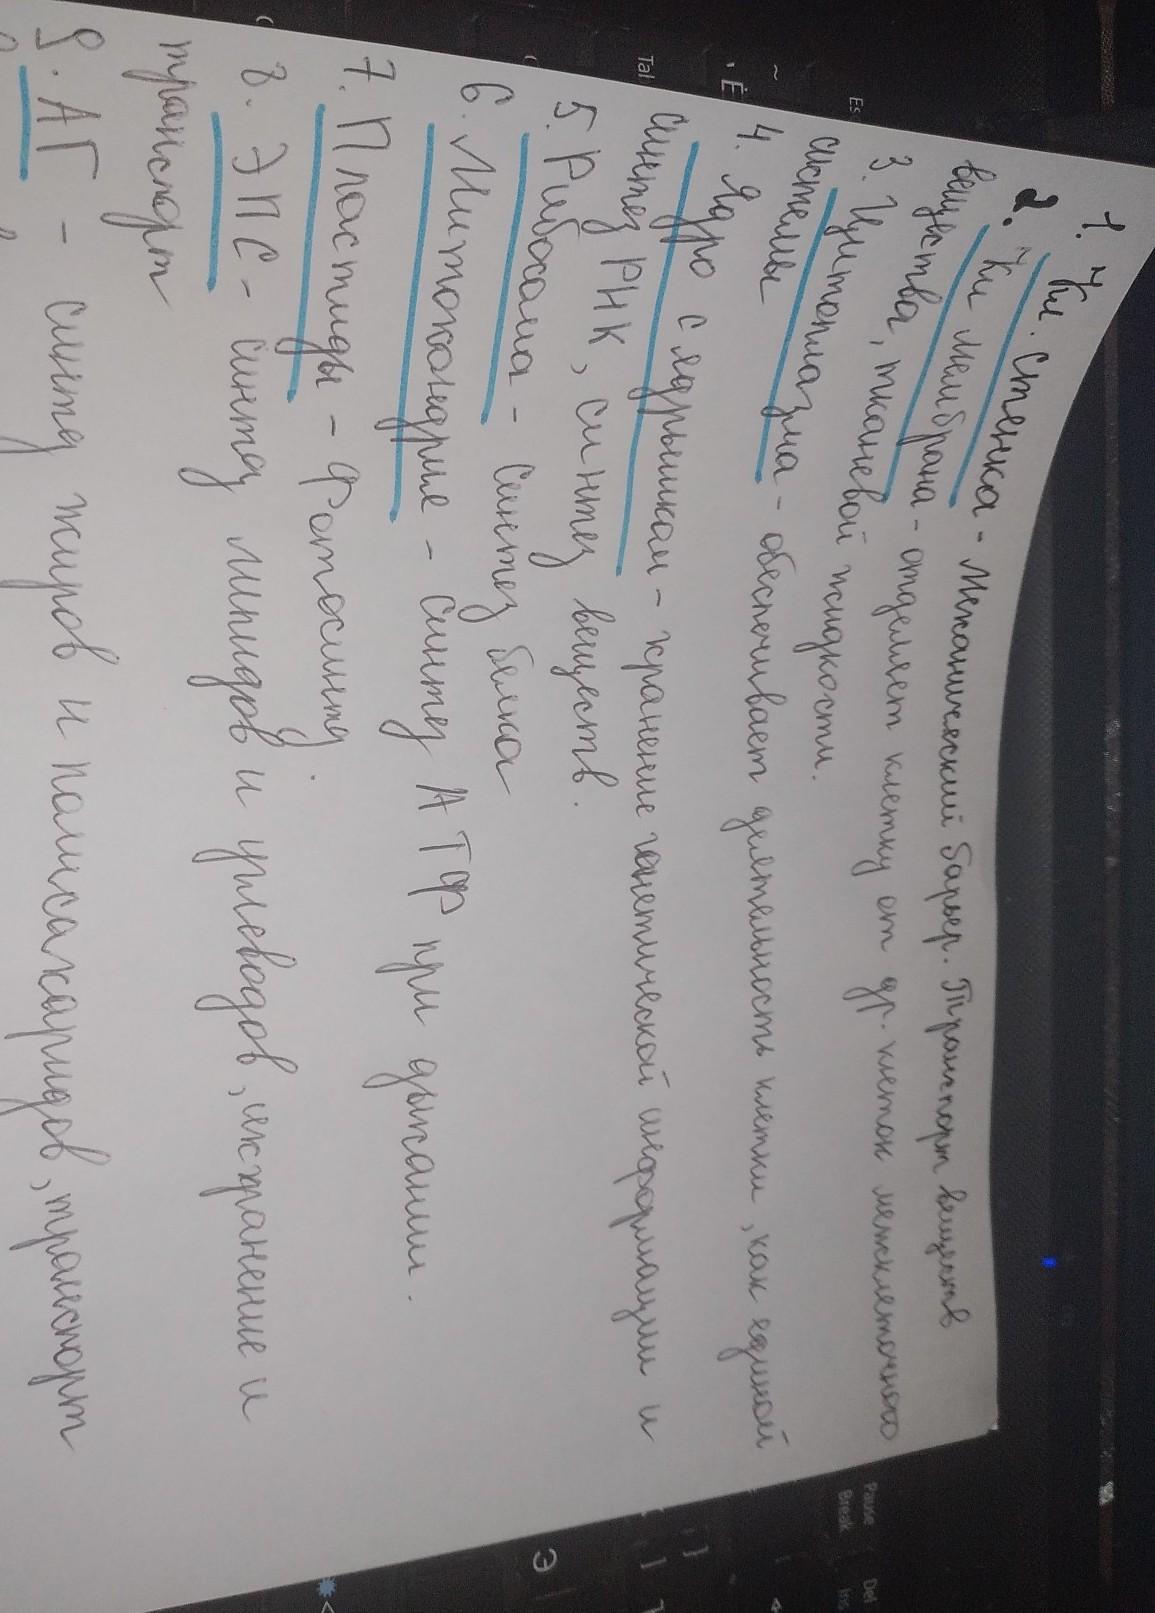 1. Кл. стенка - Механический барьер. Транспорт веществ
2. Кл мембрана - отделяет клетку от др. клеток межклеточного
вещества, тканевой жидкости.
3. Цитоплазма - обеспечивает деятельность клетки, как единой
системы
4. Ядро с ядрышком - хранение генетической информации и
синтез РНК, синтез веществ.
5. Рибосома - синтез белка
6. Митохондрие - Синтез АТФ при дыхании.
7. Пластиды - Фотосинтез.
8. ЭПС - синтез липидов и углеводов, их хранение и
транспорт
9. АГ - синтез жиров и полисахаридов, транспорт
Tab
Es
~
Ё
Pause
Break
Del
Ins
Э
]
}